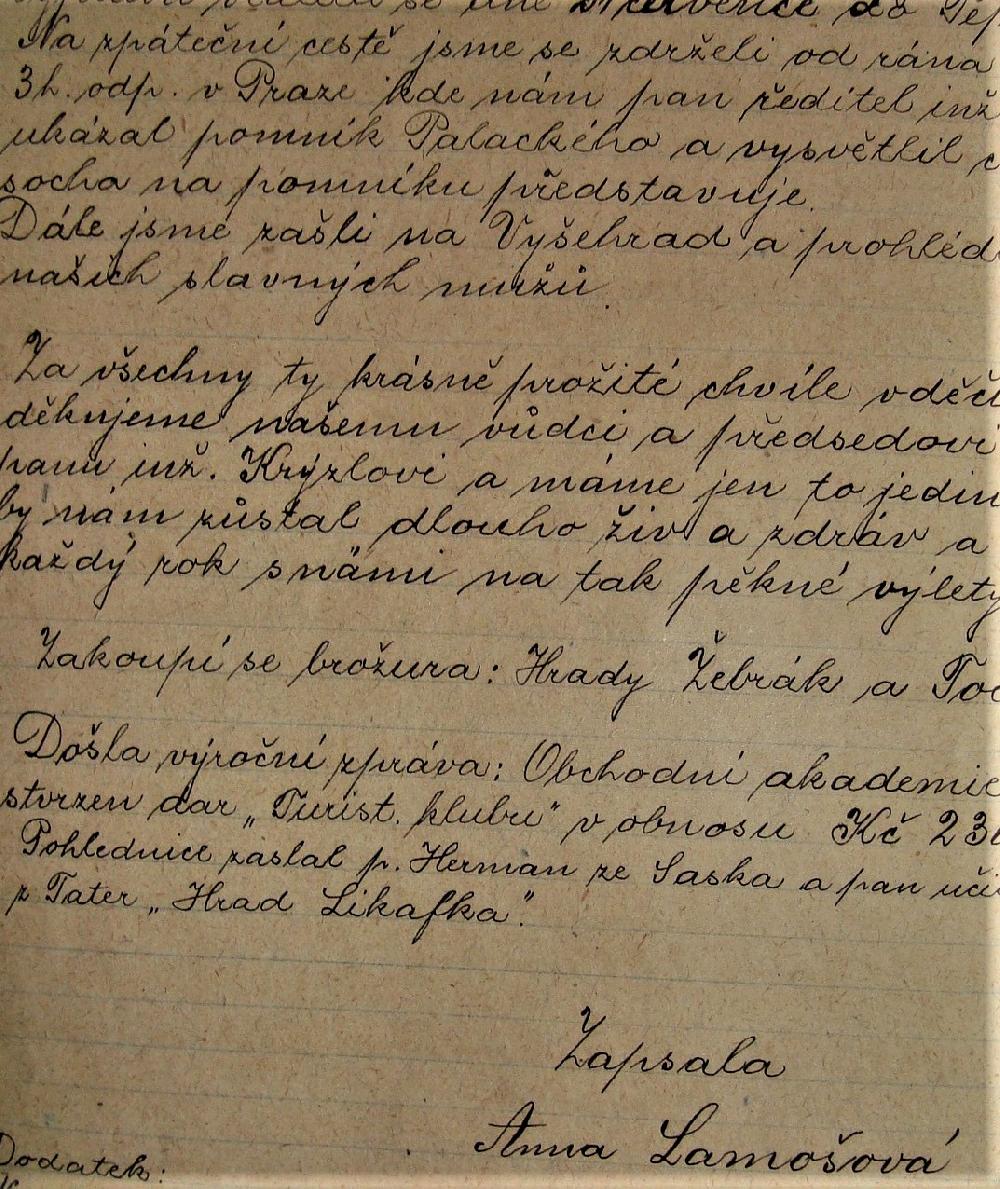 se dne července do
Na zpáteční cestě jsme se zdrželi od rána
3h. odp. v Praze kde nám pan ředitel inž
ukázal pomník Palackého a vysvětlil
socha na pomníku představuje.
Dále jsme zašli na Vyšehrad a prohléd
našich slavných mužů.
Za všechny ty krásně prožité chvíle vděč
děkujeme našemu vůdci a předsedovi
panu inž. Krýzlovi a máme jen to jedin
by nám zůstal dlouho živ a zdráv a
každý rok s námi na tak pěkné výlety
Zakoupí se brožura: Hrady Žebrák a Toč
Došla výroční zpráva: Obchodní akademie
stvrzen dar „Turist. klubu" v obnosu Kč 230
Pohlednice zaslal p. Herman ze Saska a pan uči
z Tater „Hrad Likafka".
Zapsala
Anna Lamošová
Dodatek: